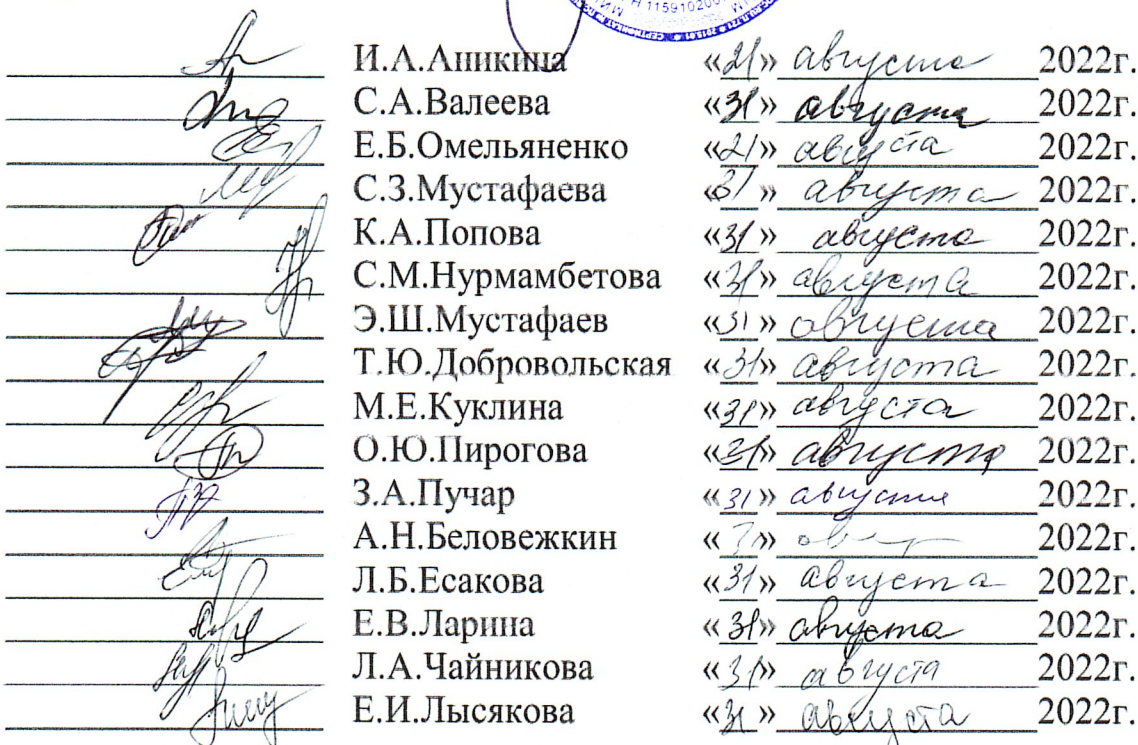 Н 115910200
И.А.Аникина «21» августа 2022г.
С.А.Валеева «31» августа 2022г.
Е.Б.Омельяненко «21» августа 2022г.
С.З.Мустафаева «31» августа 2022г.
К.А.Попова «31» августа 2022г.
С.М.Нурмамбетова «31» августа 2022г.
Э.Ш.Мустафаев «31» августа 2022г.
Т.Ю.Добровольская «31» августа 2022г.
М.Е.Куклина «31» августа 2022г.
О.Ю.Пирогова «31» августа 2022г.
З.А.Пучар «31» августа 2022г.
А.Н.Беловежкин 2022г.
Л.Б.Есакова «31» августа 2022г.
Е.В.Ларина «31» августа 2022г.
Л.А.Чайникова «31» августа 2022г.
Е.И.Лысякова «31» августа 2022г.